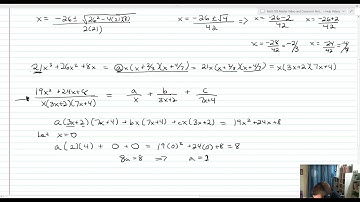 x = -26 ± √(26² - 4(21)(8)) / 2(21)    x = -26 ± √4 / 42 ⇒ x = -26-2 / 42    x = -26+2 / 42
x = -28/42 = -2/3    x = -24/42 = -4/7
21x³ + 26x² + 8x = 21x(x + 2/3)(x + 4/7) = 21x(x + 2/3)(x + 4/7) = x(3x+2)(7x+4)
19x² + 24x + 8 / x(3x+2)(7x+4) = a/x + b/3x+2 + c/7x+4
a(3x+2)(7x+4) + bx(7x+4) + cx(3x+2) = 19x² + 24x + 8
Let x = 0
a(2)(4) + 0 + 0 = 19(0)² + 24(0) + 8 = 8
8a = 8 ⇒ a = 1